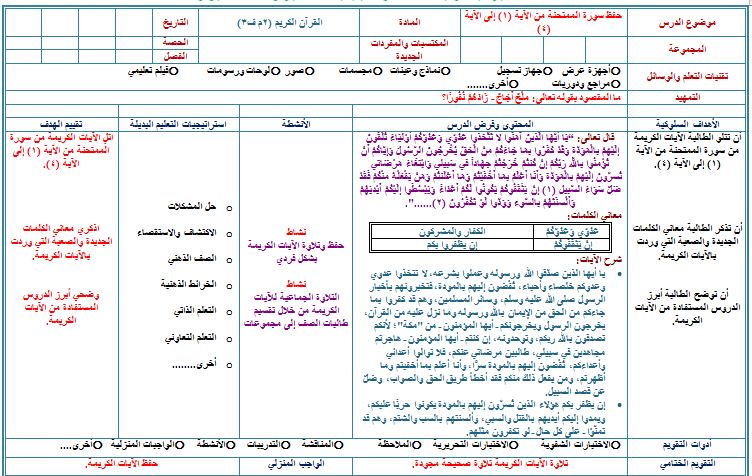 موضوع الدرس
حفظ سورة الممتحنة من الآية (١) إلى الآية (٤)
المادة
القرآن الكريم (٢م ف٣)
التاريخ
المجموعة
المكتسبات والمفردات الجديدة
الحصة
الفصل
تقنيات التعلم والوسائل
أجهزة عرض
جهاز تسجيل
نماذج وعينات
مجسمات
صور
لوحات ورسومات
فيلم تعليمي
مراجع ودوريات
أخرى........
التمهيد
ما المقصود بقوله تعالى: ملحٌ أجاجٌ - زادهم نُفُورًا؟
الأهداف السلوكية
المحتوى وعرض الدرس
الأنشطة
استراتيجيات التعليم البديلة
تقييم الهدف
أن تتلو الطالبة الآيات الكريمة
من سورة الممتحنة من الآية
(١) إلى الآية (٤).
أن تذكر الطالبة معاني الكلمات
الجديدة والصعبة التي وردت
بالآيات الكريمة.
أن توضح الطالبة أبرز
الدروس المستفادة من الآيات
الكريمة.
قال تعالى: "يَا أَيُّهَا الَّذِينَ آمَنُوا لَا تَتَّخِذُوا عَدُوِّي وَعَدُوَّكُمْ أَوْلِيَاءَ تُلْقُونَ
إِلَيْهِم بِالْمَوَدَّةِ وَقَدْ كَفَرُوا بِمَا جَاءَكُم مِّنَ الْحَقِّ يُخْرِجُونَ الرَّسُولَ وَإِيَّاكُمْ أَن
تُؤْمِنُوا بِاللَّهِ رَبِّكُمْ إِن كُنتُمْ خَرَجْتُمْ جِهَادًا فِي سَبِيلِي وَابْتِغَاءَ مَرْضَاتِي
تُسِرُّونَ إِلَيْهِم بِالْمَوَدَّةِ وَأَنَا أَعْلَمُ بِمَا أَخْفَيْتُمْ وَمَا أَعْلَنتُمْ وَمَن يَفْعَلْهُ مِنكُمْ فَقَدْ
ضَلَّ سَوَاءَ السَّبِيلِ (١) إِن يَثْقَفُوكُمْ يَكُونُوا لَكُمْ أَعْدَاءً وَيَبْسُطُوا إِلَيْكُمْ أَيْدِيَهُمْ
وَأَلْسِنَتَهُم بِالسُّوءِ وَوَدُّوا لَوْ تَكْفُرُونَ (٢)......".
معاني الكلمات:
عَدُوِّي وَعَدُوَّكُمْ
الكفار والمشركون
إِن يَثْقَفُوكُمْ
إن يظفروا بكم
شرح الآيات:
يا أيها الذين صدَّقوا الله ورسوله وعملوا بشرعه، لا تتخذوا عدوي
وعدوكم خلصاء وأحباء، تُفْضون إليهم بالمودة، فتخبرونهم بأخبار
الرسول صلى الله عليه وسلم، وسائر المسلمين، وهم قد كفروا بما
جاءكم من الحق من الإيمان بالله ورسوله وما نزل عليه من القرآن،
يخرجون الرسول ويخرجونكم - أيها المؤمنون - من "مكة"؛ لأنكم
تصدقون بالله ربكم، وتوحدونه، إن كنتم - أيها المؤمنون - هاجرتم
مجاهدين في سبيلي، طالبين مرضاتي عنكم، فلا توالوا أعدائي
وأعداءكم، تُفْضون إليهم بالمودة سرًّا، وأنا أعلم بما أخفيتم وما
أظهرتم، ومن يفعل ذلك منكم فقد أخطأ طريق الحق والصواب، وضلَّ
عن قصد السبيل.
إن يظفر بكم هؤلاء الذين تُسرُّون إليهم بالمودة يكونوا حربًا عليكم،
ويمدوا إليكم أيديهم بالقتل والسبي، وألسنتهم بالسب والشتم، وهم قد
تمنَّوا - على كل حال - لو تكفرون مثلهم.
نشاط
حفظ وتلاوة الآيات الكريمة
بشكل فردي
نشاط
التلاوة الجماعية للآيات
الكريمة من خلال تقسيم
طالبات الصف إلى مجموعات
حل المشكلات
الاكتشاف والاستقصاء
الصف الذهني
الخرائط الذهنية
التعلم الذاتي
التعلم التعاوني
أخرى........
اتل الآيات الكريمة من سورة
الممتحنة من الآية (١) إلى
الآية (٤).
اذكري معاني الكلمات
الجديدة والصعبة التي وردت
بالآيات الكريمة.
وضحي أبرز الدروس
المستفادة من الآيات
الكريمة.
أدوات التقويم
الاختبارات الشفوية
الاختبارات التحريرية
الملاحظة
المناقشة
التدريبات
الأنشطة
الواجبات المنزلية
أخرى....
التقويم الختامي
تلاوة الآيات الكريمة تلاوة صحيحة مجودة.
الواجب المنزلي
حفظ الآيات الكريمة.